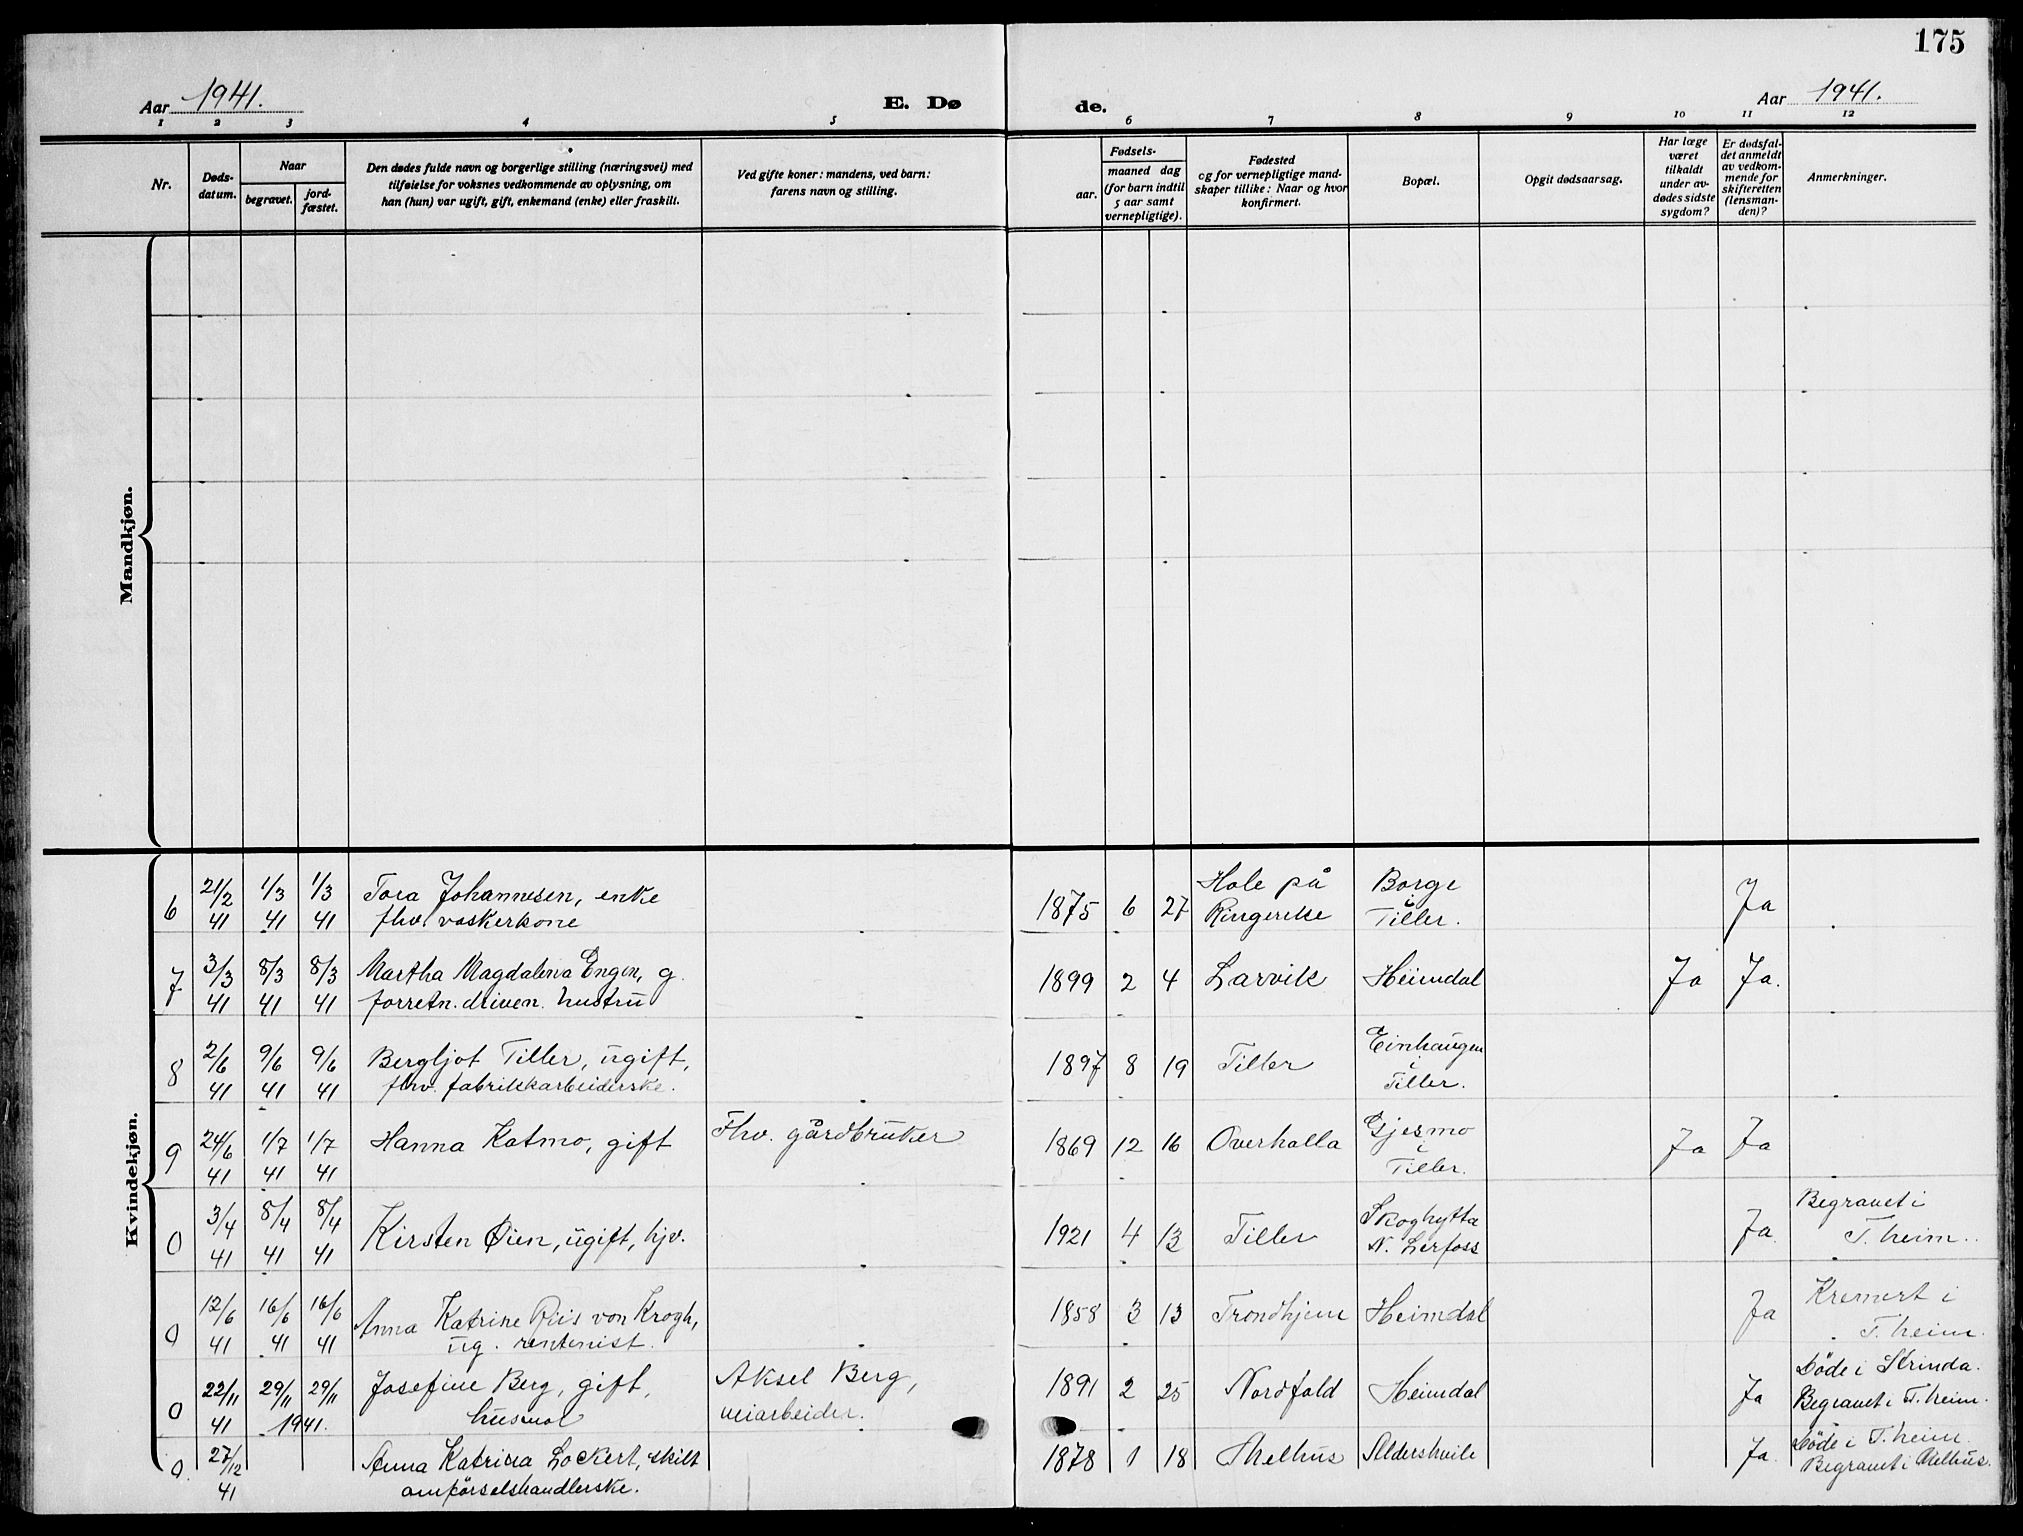 175
Aar 1941.
E. Dø
de.
Aar 1941.
1 2 3 4 5 6 7 8 9 10 11 12
Nr.
Døds-
datum.
Naar
begravet.
jord-
fæstet.
Den dødes fulde navn og borgerlige stilling (næringsvei) med
tilføielse for voksnes vedkommende av oplysning, om
han (hun) var ugift, gift, enkemand (enke) eller fraskilt.
Ved gifte koner: mandens, ved barn:
farens navn og stilling.
Fødsels-
aar.
maaned dag
(for barn indtil
5 aar samt
vernepligtige).
Fødested
og for vernepligtige mand-
skaper tillike: Naar og hvor
konfirmert.
Bopæl.
Opgit dødsaarsag.
Har læge
været
tilkaldt
under av-
dødes sidste
sygdom?
Er dødsfal-
det anmeldt
av vedkom-
mende for
skifteretten
(lensman-
den)?
Anmerkninger.
Mandkjøn.
Kvindekjøn.
6 21/2 41 1/3 41 1/3 41 Tora Johannesen, enke
fhv. vaskerkone
1875 6 27 Hole på
Ringerike
Borge
i
Tiller.
Ja
7 3/3 41 8/3 41 8/3 41 Martha Magdalena Engen, g.
forretn. driven. hustru
1899 2 4 Larvik Heimdal Ja Ja.
8 2/6 41 9/6 41 9/6 41 Bergljot Tiller, ugift,
fhv. fabrikkarbeiderske.
1897 8 19 Tiller Einhaugen
i
Tiller.
9 24/6 41 1/7 41 1/7 41 Hanna Katmo, gift Fhv. gårdbruker
1869 12 16 Overhalla Gjesmo
i
Tiller.
Ja Ja
0 3/4 41 8/4 41 8/4 41 Kirsten Øien, ugift, hjv.
1921 4 13 Tiller Skoghytta
N. Lerfoss
Ja. Begravet i
T.heim.
0 12/6 41 16/6 41 16/6 41 Anna Katrine Riis von Krogh,
ug. rentenist.
1858 3 13 Trondhjem Heimdal Ja Kremert i
T.heim.
0 22/11 41 29/11 29/11 1941. Josefine Berg, gift,
husmor
Aksel Berg,
veiarbeider.
1891 2 25 Nordfold Heimdal Ja Døde i Strinda.
Begravet i T.heim.
0. 27/12 41 Anna Katrina Lockert, skilt
omførselshandlerske.
1878 1 18 Melhus Aldershvile Ja. Døde i T.heim.
Begravet i Melhus.